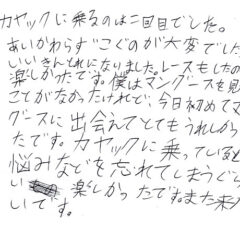 カヤックに乗るのは二回目でした。
あいかわらずこぐのが大変でした
いいきんトレになりました。レースもしたの
楽しかったです。僕はマングースを見
ことがなかったけれど、今日初めてマ
グースに出会えてとてもうれしかっ
たです。カヤックに乗っていると
悩みなどを忘れてしまうぐら
い楽しかったです。また来た
いです。